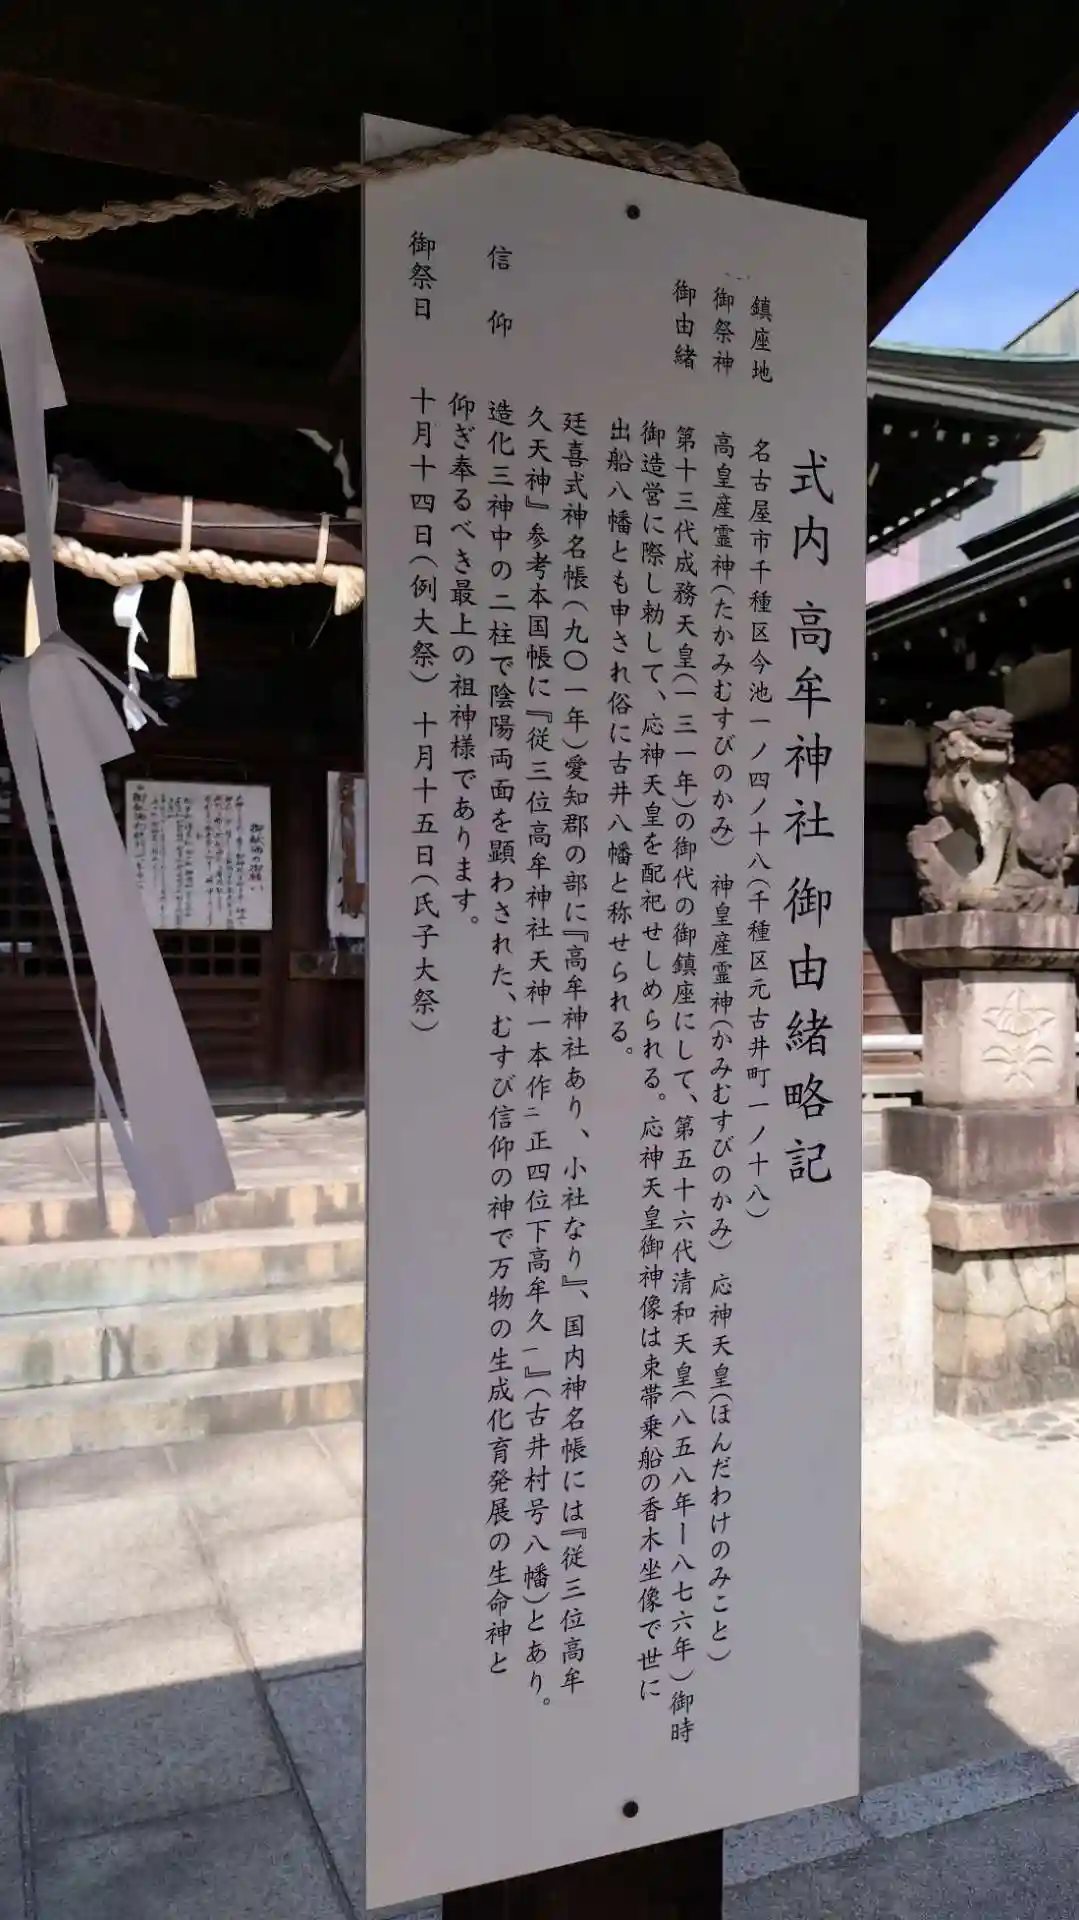 式内 高牟神社 御由緒略記
鎮座地 名古屋市千種区今池一ノ四ノ十八(千種区元古井町一ノ十八)
御祭神 高皇産霊神(たかみむすびのかみ) 神皇産霊神(かみむすびのかみ) 応神天皇(ほんだわけのみこと)
御由緒 第十三代成務天皇(一三一年)の御代の御鎮座にして、第五十六代清和天皇(八五八年ー八七六年)御時
御造営に際し勅して、応神天皇を配祀せしめられる。応神天皇御神像は束帯乗船の香木坐像で世に
出船八幡とも申され俗に古井八幡と称せられる。
廷喜式神名帳(九〇一年)愛知郡の部に『高牟神社あり、小社なり』、国内神名帳には『従三位高牟
久天神』参考本国帳に『従三位高牟神社天神一本作ニ正四位下高牟久一』(古井村号八幡)とあり。
信仰 造化三神中の二柱で陰陽両面を顕わされた、むすび信仰の神で万物の生成化育発展の生命神と
仰ぎ奉るべき最上の祖神様であります。
御祭日 十月十四日(例大祭) 十月十五日(氏子大祭)